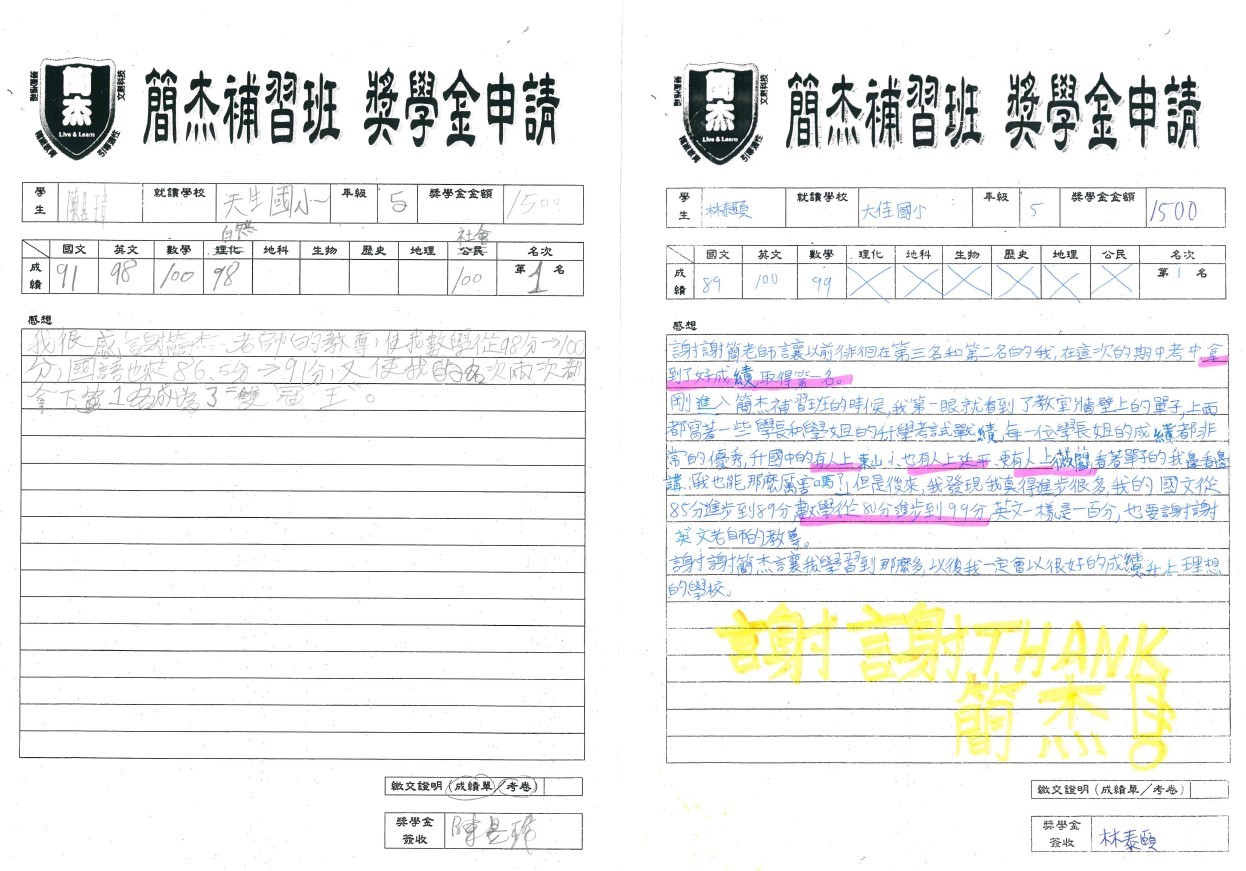 簡杰
Live & Learn
簡杰補習班 獎學金申請
學生 就讀學校 天生國小 年級 5 獎學金金額 1500
自然 社會
國文 英文 數學 理化 地科 生物 歷史 地理 公民 名次
成績 91 98 100 98 100 第1名
感想
我很感謝簡杰老師的教導,使我數學從98分→100
分,國語也從86.5分→91分,又使我的名次兩次都
拿下第1名成為了"雙冠王"。
繳交證明(成績單/考卷)
獎學金簽收
簡杰
Live & Learn
簡杰補習班 獎學金申請
學生 林泰頤 就讀學校 大佳國小 年級 5 獎學金金額 1500
國文 英文 數學 理化 地科 生物 歷史 地理 公民 名次
成績 89 100 99 第1名
感想
謝謝簡老師讓以前徘徊在第三名和第二名的我,在這次的期中考中拿
到了好成績,取得第一名。
剛進入簡杰補習班的時候,我第一眼就看到了教室牆壁上的單子,上面
都寫著一些學長和學姐的升學考試戰績,每一位學長姐的成績都非
常的優秀,升國中的有人上東山、也有人上延平、更有人上薇閣,看著單子的我邊看邊
講「我也能那麼厲害嗎?」但是後來,我發現我真得進步很多,我的國文從
85分進步到89分,數學從80分進步到99分,英文一樣是一百分,也要謝謝
英文老師的教導。
謝謝簡杰讓我學習到那麼多,以後我一定會以很好的成績升上理想
的學校。
謝謝THANK
簡杰!
繳交證明(成績單/考卷)
獎學金簽收 林泰頤